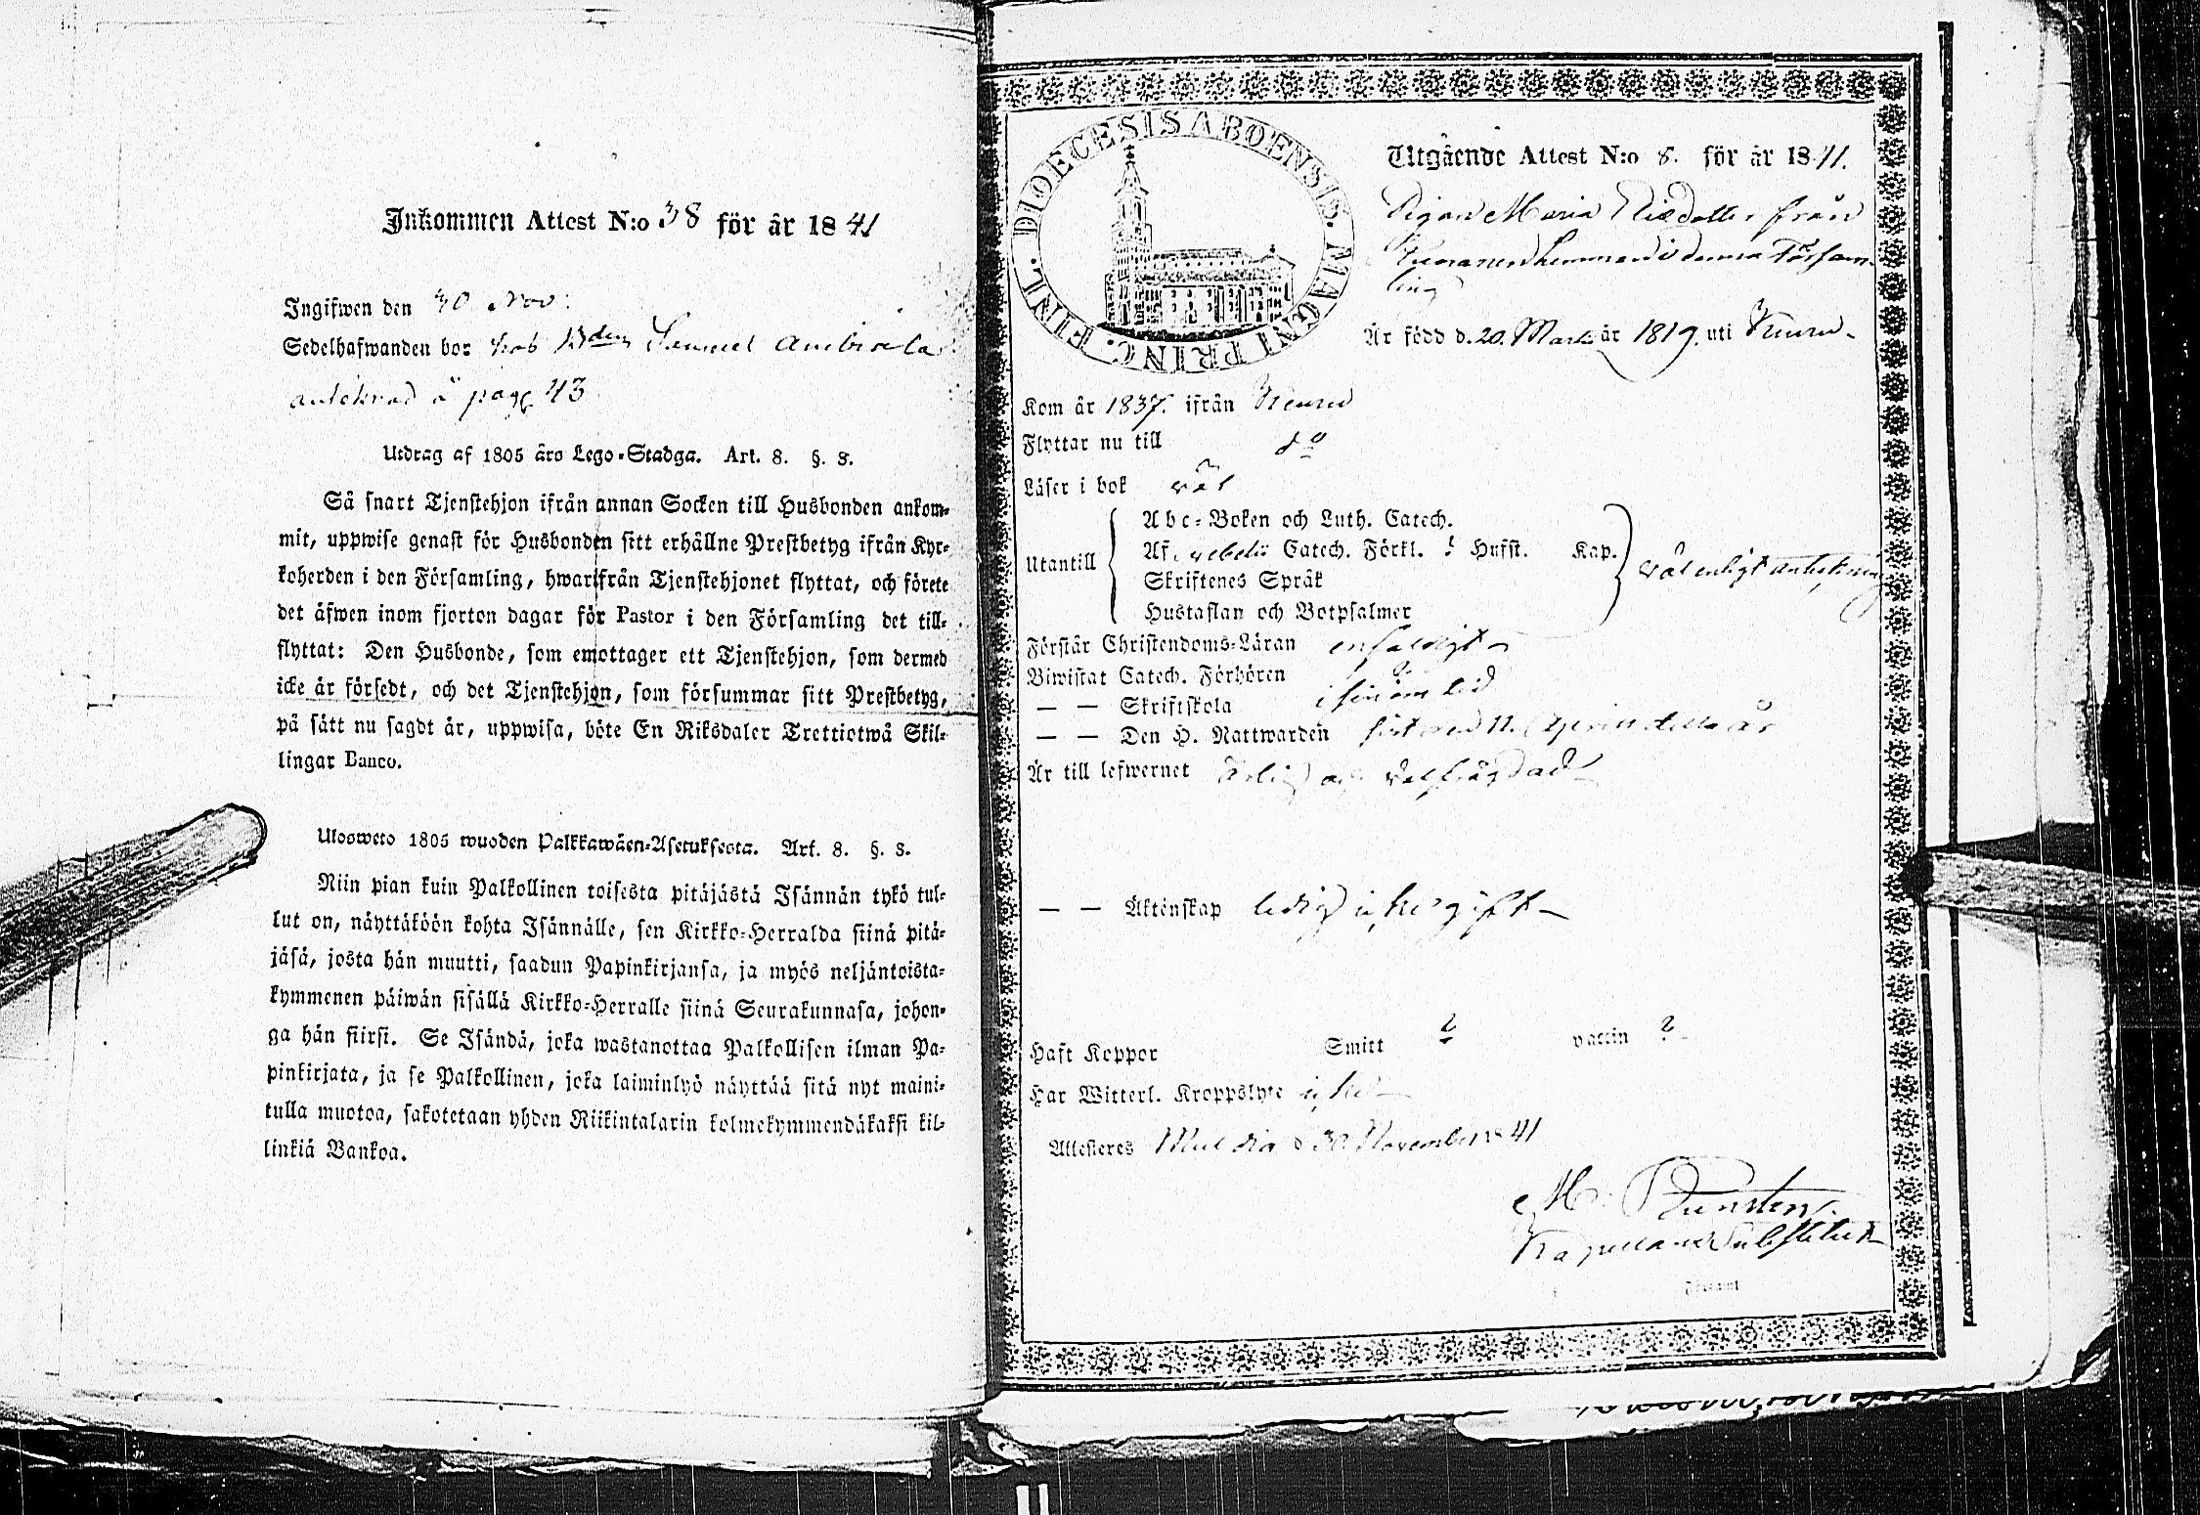 Inkommen Attest N:o 38 för år 1841
Ingifwen den 30 Nov:
Sedelhafwanden bor hos Samuel
å pag. 43
Utdrag af 1805 års Lego-Stadga. Art. 8. §. 3.
Så snart Tjenstehjon ifrån annan Socken till Husbonden ankom-
mit, uppwise genast för Husbonden sitt erhållne Prestbetyg ifrån Kyr-
koherden i den Församling, hwarifrån Tjenstehjonet flyttat, och förete
det äfwen inom fjorton dagar för Pastor i den Församling det till-
flyttat: Den Husbonde, som emottager ett Tjenstehjon, som dermed
icke är försedt, och det Tjenstehjon, som försummar sitt Prestbetyg,
på sätt nu sagdt är, uppwisa, böte En Riksdaler Trettiotwå Skil-
lingar Banco.
Ulosweto 1805 wuoden Palkkawäen-Asetuksesta. Art. 8. §. 3.
Niin pian kuin Palkollinen toisesta pitäjästä Isännän tykö tul-
lut on, näyttäköön kohta Isännälle, sen Kirkko-Herralda siinä pitä-
jäsä, josta hän muutti, saadun Papinkirjansa, ja myös neljäntoista-
kymmenen päiwän sisällä Kirkko-Herralle siinä Seurakunnasa, johon-
ga hän siirsi. Se Isändä, joka wastanottaa Palkollisen ilman Pa-
pinkirjata, ja se Palkollinen, joka laiminlyö näyttää sitä nyt maini-
tulla muotoa, sakotetaan yhden Riikintalarin kolmekymmendäkaksi kil-
linkiä Bankoa.
DIOECESIS ABOENSIS. MAGNI PRINC. FINL.
Utgående Attest N:o 8. för år 1841.
Pigan Maria Eliædotter från
hemman i denna Församl
ling
Är född d. 20. Mars år 1819. uti Keuru
Kom år 1837. ifrån Keuru
Flyttar nu till do
Läser i bok väl
Utantill
Abc-Boken och Luth. Catech.
Af Catech. Förkl. Husst. Kap.
Skriftenes Språk
Hustaflan och Botpsalmer
väl enligt anteckning
Förstår Christendoms-Läran enfaldigt
Biwistat Catech. Förhören
— — Skriftskola i sinom tid
— — Den H. Nattwarden sist den 11. April detta år
Är till lefwernet ärlig och välfrägdad
— — Äktenskap ledig icke gift
Haft Koppor Smitt ? vaccin ?
Har Witterl. Kroppslyte icke
Attesteres Multia d 30 November 1841
M.
Kapellans Substitut